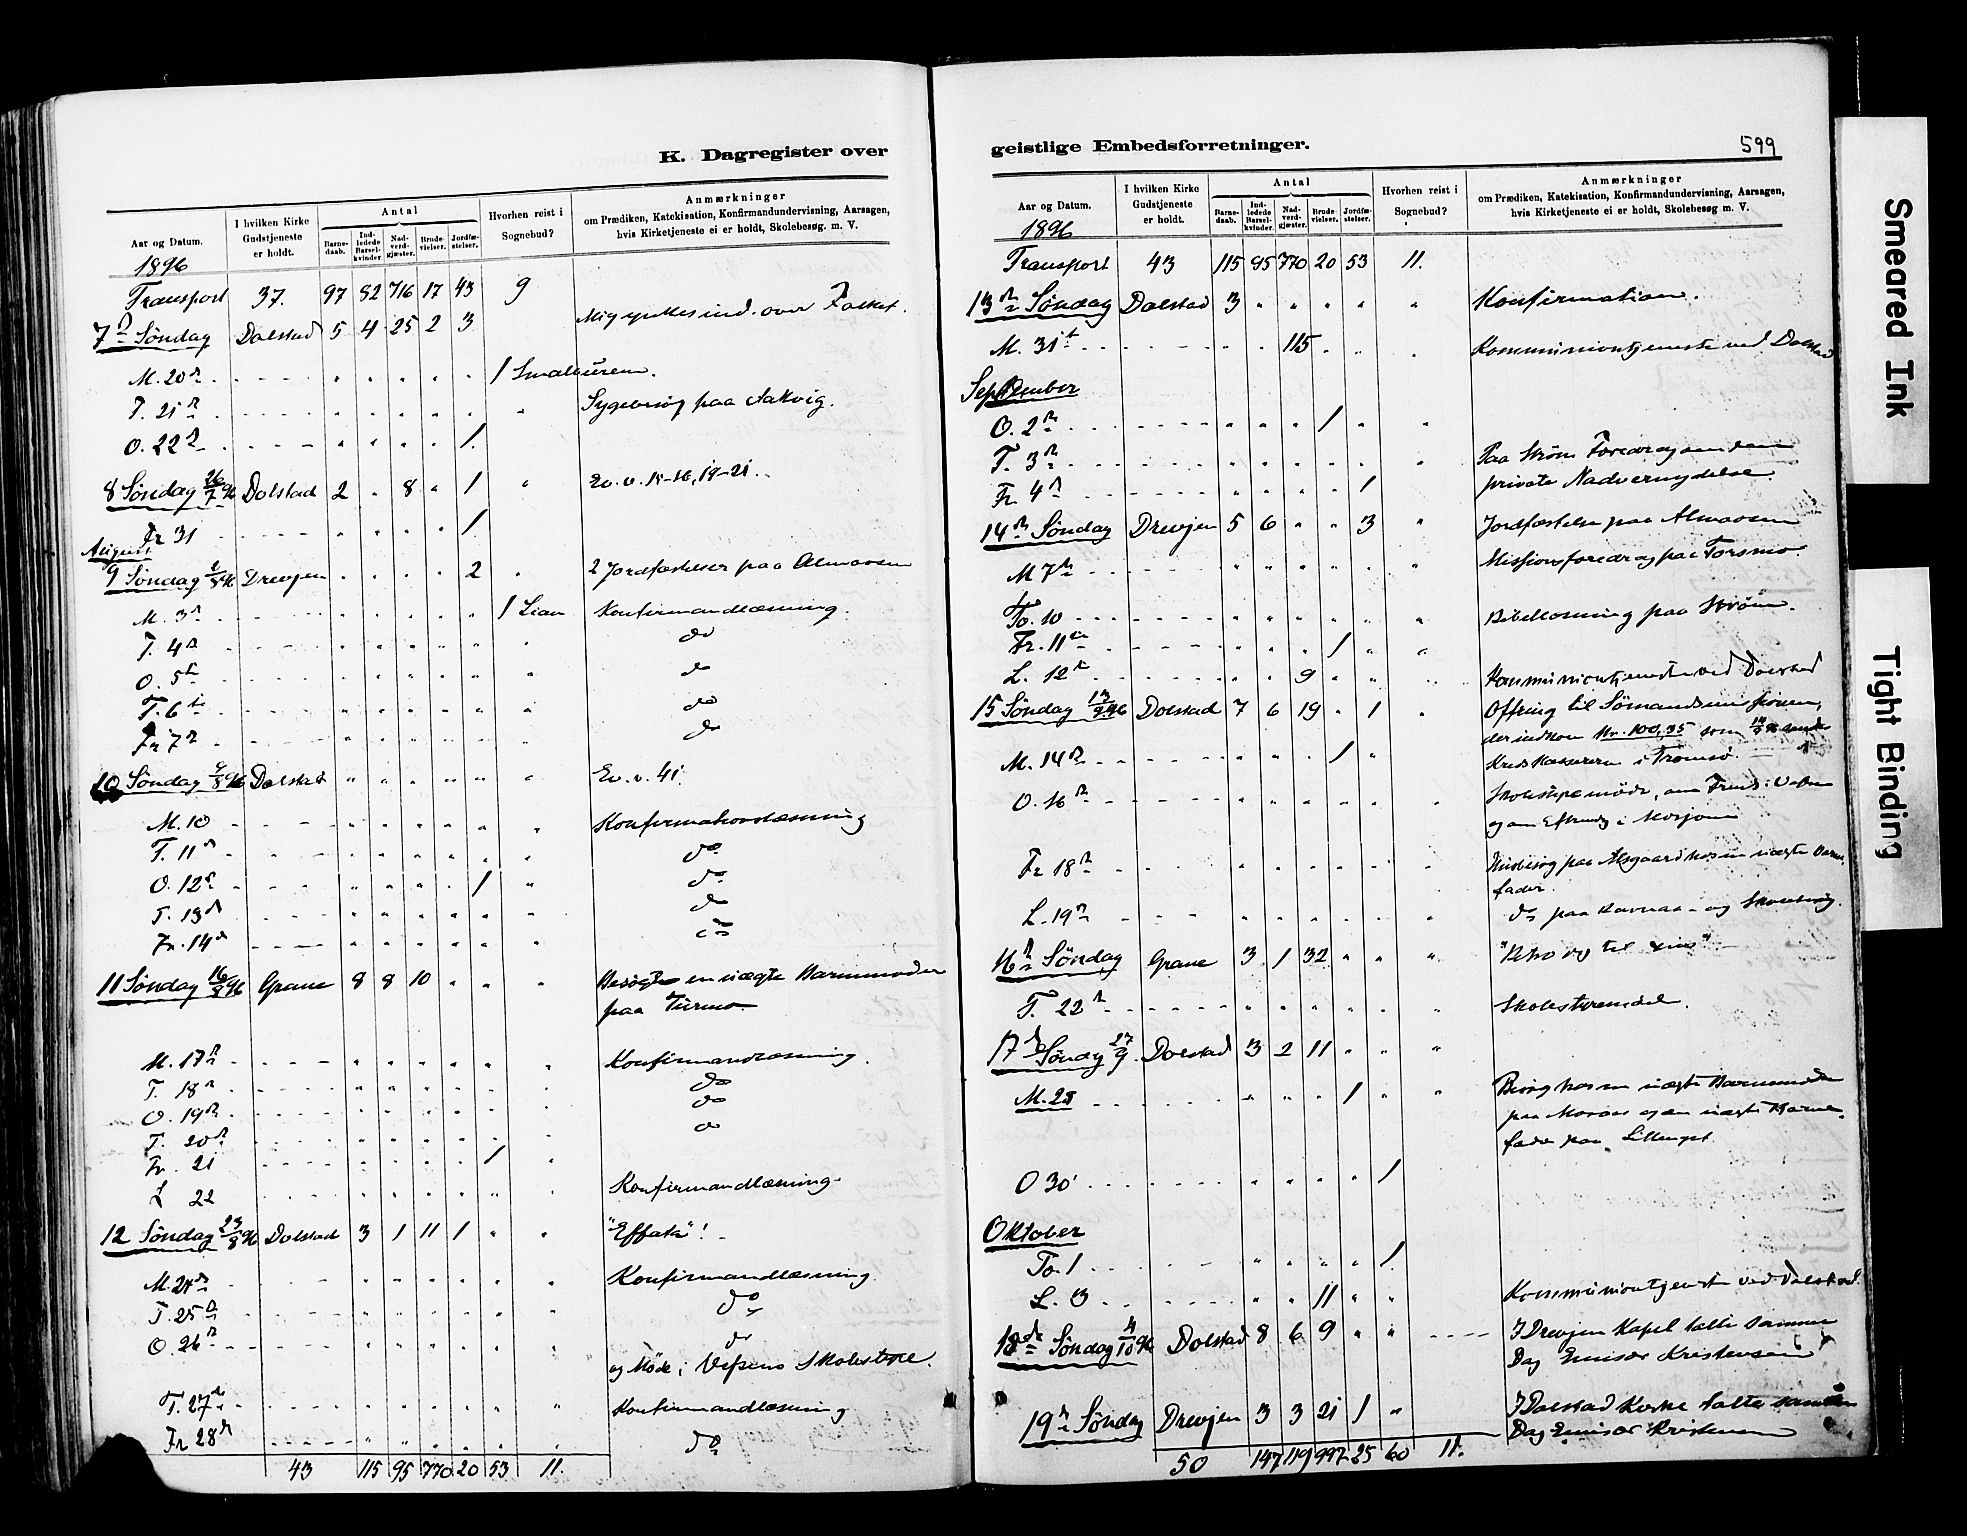 K. Dagregister over
Aar og Datum.
I hvilken Kirke Gudstjeneste er holdt.
Antal
Barnedaab.
Indledede Barselkvinder
Nadverdgjæster.
Brudevielser.
Jordfæstelser.
Hvorhen reist i Sognebud?
Anmærkninger
om Prædiken, Katekisation, Konfirmandundervisning, Aarsagen,
hvis Kirketjeneste ei er holdt, Skolebesøg. m. V.
1896
Transport 37. 97 82 716 17 43 9
7d Søndag Dolstad 5 4 25 2 3 Mig ynkes ind. over Folket.
M. 20d 1
T. 21d Sygebesøg paa
O. 22d 1.
8 Søndag 26/7 96 Dolstad 2 8 1 Ev. v. 15-16, 19-21.
Fr 31 1
August
9 Søndag 2/8 96 Drevjen 2 2 Jordfæstelser paa Almaasen
M. 3d 1 Lian Konfirmandlæsning.
T. 4d do
O. 5te do
T. 6te do
Fr 7d do
10 Søndag 9/8 96 Dolstad Ev. v. 41.
M. 10 Konfirmationslæsning
T. 11d do
O. 12d 1 do
T. 13d do
Fr. 14d do
11 Søndag 16/8 96 Grane 8 8 10 Besøgte en uægte Barnemoder
paa Turmo.
M. 17d Konfirmandlæsning.
T. 18d do
O. 19d do
T. 20d do
Fr. 21 1
L 22 Konfirmandlæsning.
12 Søndag 23/8 96 Dolstad 3 1 11 1 "Effata"!
M. 24d Konfirmandlæsning.
T. 25d do
O. 26d do
og Møde i Vefsens Skolestyre.
T. 27d Konfirmandlæsning
Fr 28d do
43 115 95 770 20 53 11.
geistlige Embedsforretninger.
599
Aar og Datum.
I hvilken Kirke Gudstjeneste er holdt.
Antal
Barnedaab.
Indledede Barselkvinder.
Nadverdgjæster.
Brudevielser.
Jordfæstelser.
Hvorhen reist i Sognebud?
Anmærkninger
om Prædiken, Katekisation, Konfirmandundervisning, Aarsagen,
hvis Kirketjeneste ei er holdt, Skolebesøg m. V.
1896
Transport 43 115 95 770 20 53 11.
13d Søndag Dolstad 3 Konfirmation.
M. 31t 115 Kommuniontjeneste ved Dolstad
September
O. 2d 1
T. 3d Paa Strøm Foredrag om den
Fr. 4d 1 private Nadvernydelse.
14d Søndag Drevjen 5 6 3 Jordfæstelse paa Almaasen
M 7d Missionsforedrag paa Forsmo
To. 10 Bibellæsning paa Strøm.
Fr. 11te 1
L. 12te 9 Kommuniontjeneste ved Dolstad
15 Søndag 13/9 96 Dolstad 7 6 19 1 Offring til Sømandsmissionen,
der indkom Kr. 100,35 som 14/9 96 sendt
M. 14d 1 Kredskassereren i Tromsø.
O. 16d Skolestyremøde,
Fr 18d Husbesøg paa hos en uægte Barnefader.
L. 19d do paa
16d Søndag Grane 3 1 32
T. 22d Skolestyremøde.
17d Søndag 27/9. Dolstad 3 2 11
M. 28 1 Besøg hos en uægte Barnemoder
paa og en uægte Barnefader paa
O 30 1
Oktober
To. 1 1.
L. 3 11 Kommuniontjeneste ved Dolstad.
18de Søndag 4/10 96 Dolstad 8 6 9 I Drevjen Kapel talte samme
Dag Emissær Kristensen
19d Søndag Drevjen 3 3 21 1 I Dolstad Kirke talte samme
Dag Emissær Kristensen
50 147 119 997 25 60 11.
Smeared Ink
Tight Binding